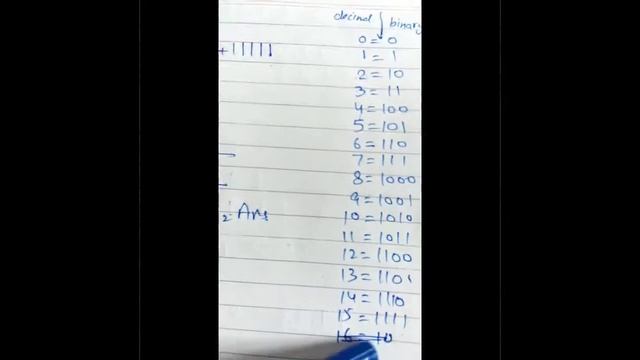 decimal binary
0 = 0
+11111
1 = 1
2 = 10
3 = 11
4 = 100
5 = 101
6 = 110
7 = 111
8 = 1000
9 = 1001
2 Ans
10 = 1010
11 = 1011
12 = 1100
13 = 1101
14 = 1110
15 = 1111
16 = 10